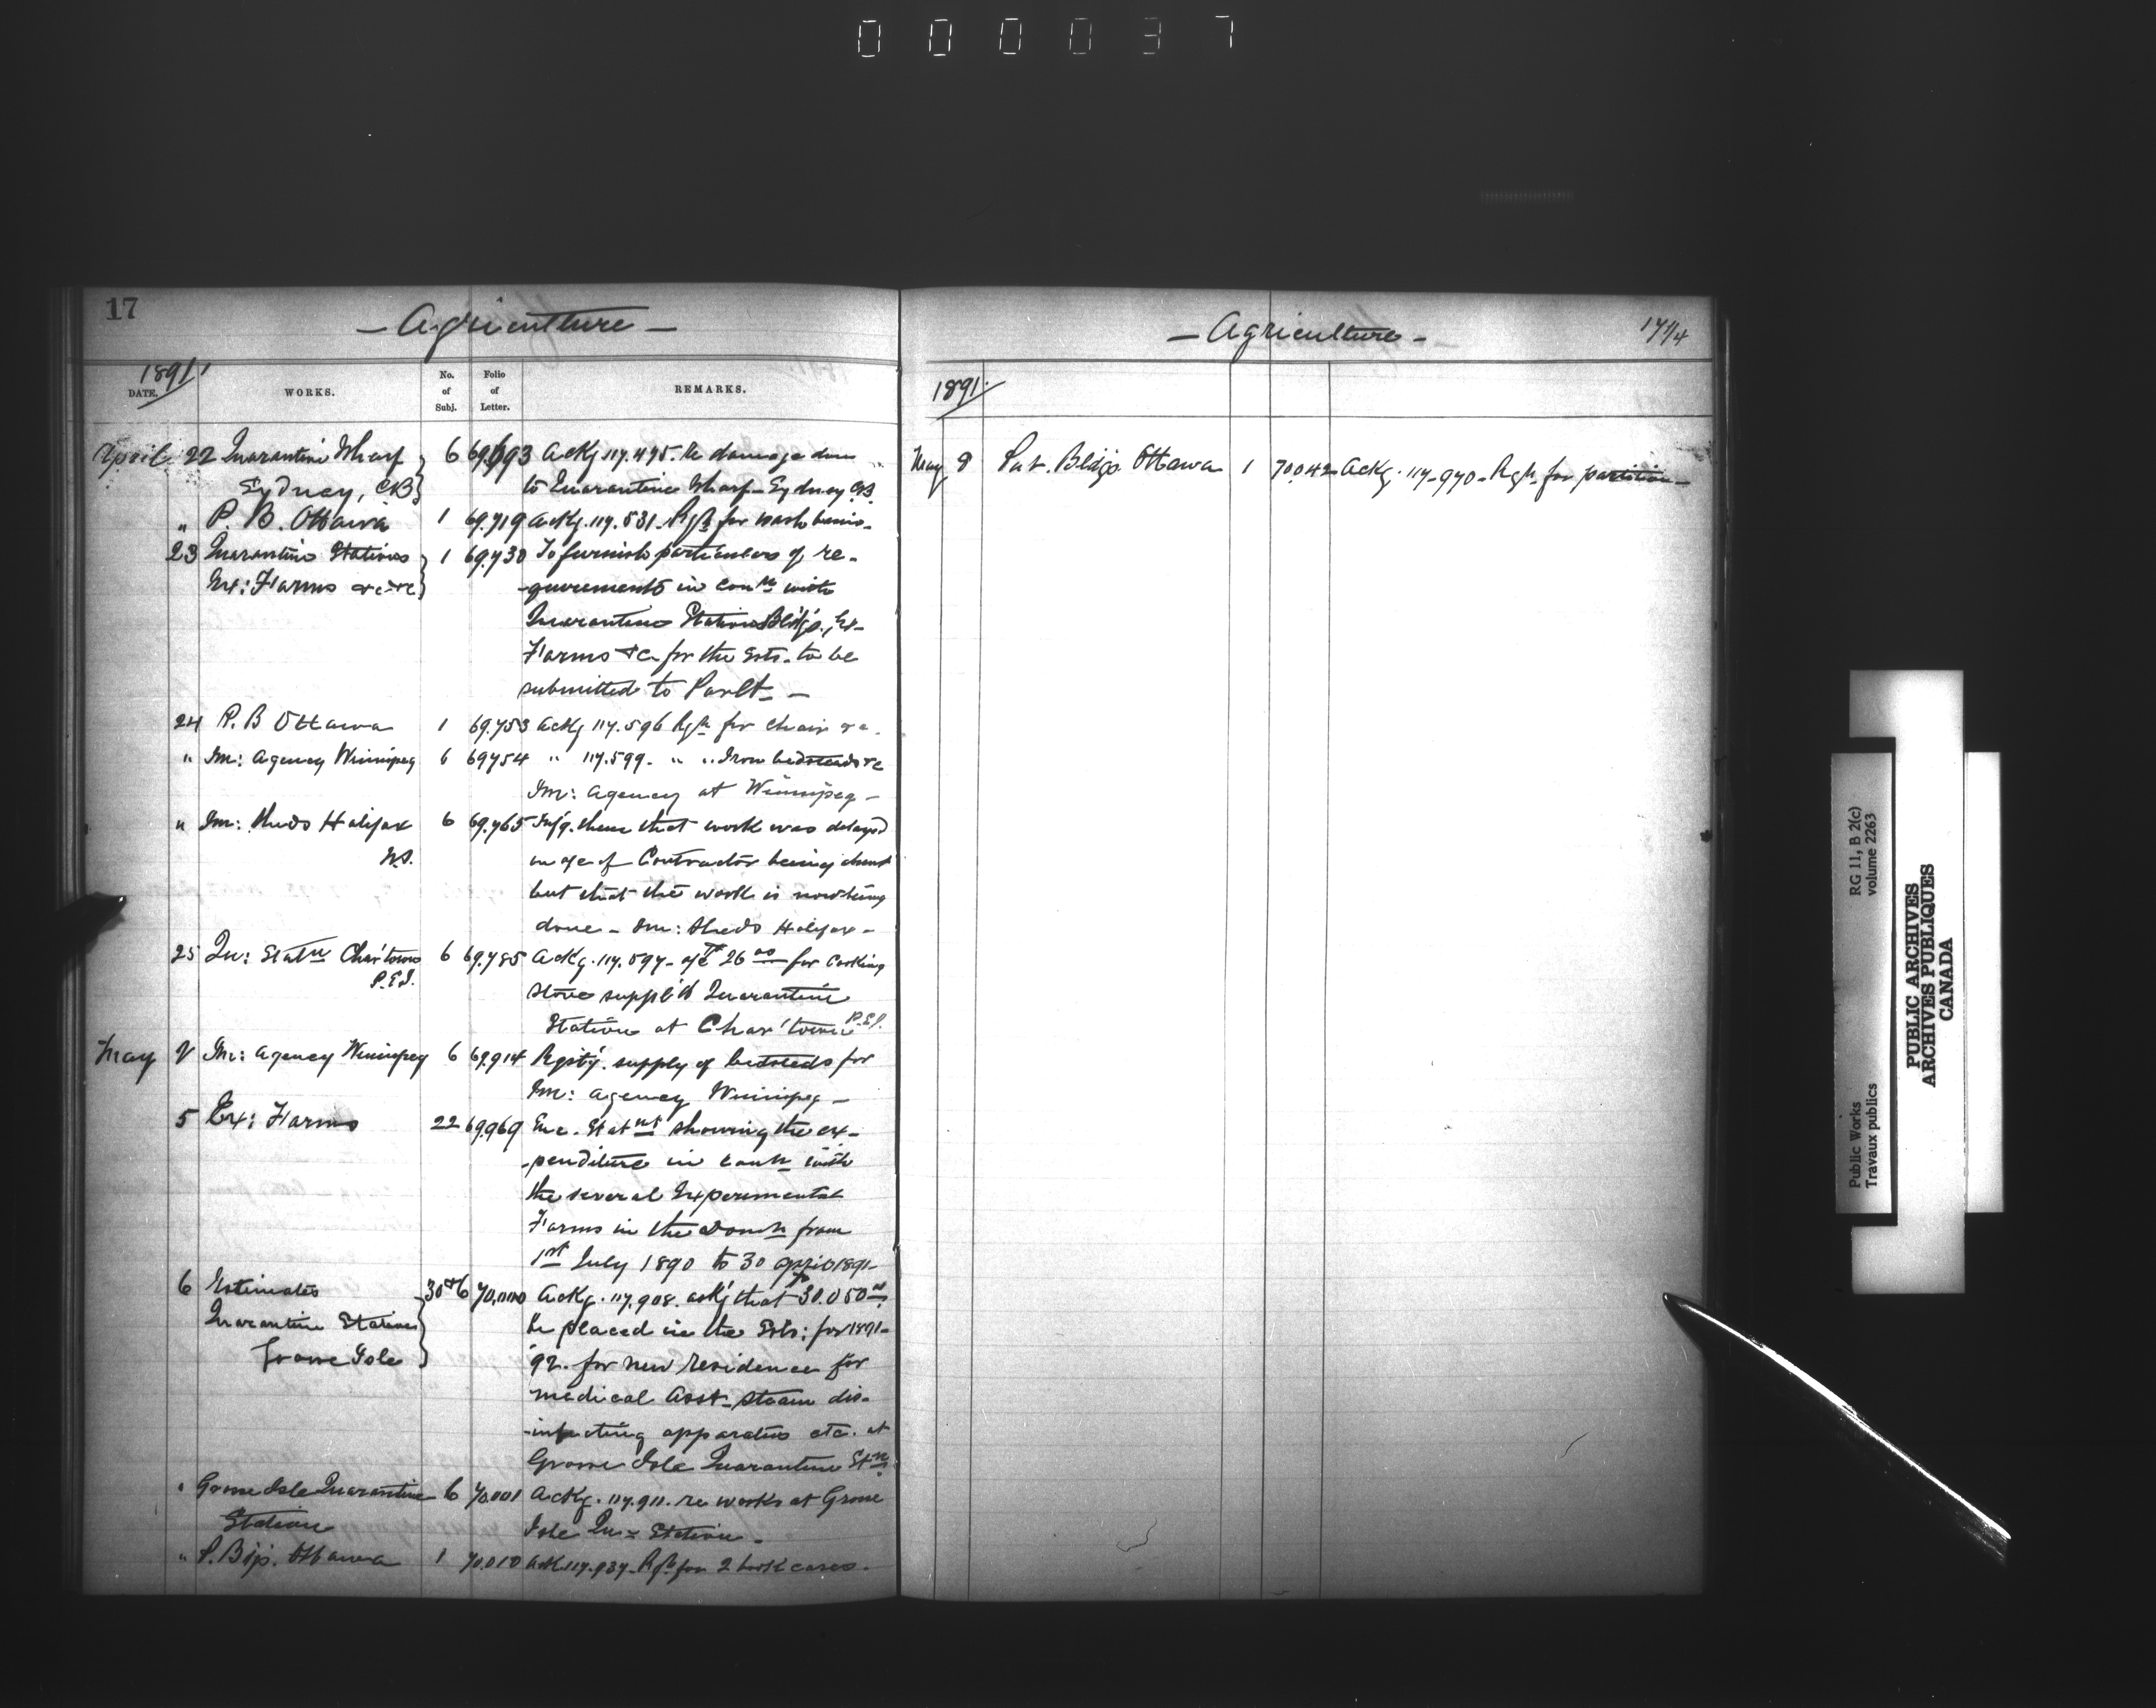 0 0 0 0 3 7
17
- Agriculture -
1891
DATE. WORKS. No. of Subj. Folio of Letter. REMARKS.
April 22 Quarantine Wharf 6 69.693 Ackg 117.475. Re damage done
Sydney, CB to Quarantine Wharf - Sydney CB.
" P. B. Ottawa 1 69.719 Ackg. 117.531 - Rqn for wash basin -
23 Quarantine Stations 1 69.730 To furnish particulars of re-
Ex: Farms &c &c -quirements in conn with
Quarantine Stations Bldgs., Ex-
Farms &c for the Ests. to be
submitted to Parlt. -
24 P. B Ottawa 1 69.753 Ackg 117.596 Rqn for chair &c.
" Im: Agency Winnipeg 6 69754 " 117.599. " " Iron bedsteads &c
Im: Agency at Winnipeg -
" Im: Sheds Halifax 6 69.765 Infg. them that work was delayed
N.S. on a/c of Contractor being
but that the work is now being
done - Im: Sheds Halifax -
25 Qu: Statn Char'town 6 69.785 Ackg. 117.597 - a/c 26 00 for Cooking
P.E.I. Stove suppl'd Quarantine
Station at Char'town P.E.I.
May 2 Im: Agency Winnipeg 6 69.914 supply of bedsteads for
Im: Agency Winnipeg -
5 Ex: Farms 22 69.969 Enc. Statnt showing the ex-
-penditure in conn with
the several Experimental
Farms in the Domn from
1st July 1890 to 30 April 1891 -
6 Estimates 30 & 6 70,000 Ackg. 117.908. ask'g that 30.050 00
Quarantine Station be placed in the Ests: for 1891-
Grosse Isle 92. for new residence for
medical Asst. steam dis-
-infecting apparatus etc. at
Grosse Isle Quarantine Stn
" Grosse Isle Quarantine 6 70.001 Ackg. 117.911. re works at Grosse
Station Isle Qu= Station -
" P. B Ottawa 1 70.010 Ack 117.937 - Rqn for 2 book cases -
- Agriculture -
17 1/4
1891.
May 8 Pub. Bldgs. Ottawa 1 70.042 Ackg. 117-970 - Rqn for partition -
Public Works RG 11, B 2(c)
Travaux publics volume 2263
PUBLIC ARCHIVES
ARCHIVES PUBLIQUES
CANADA